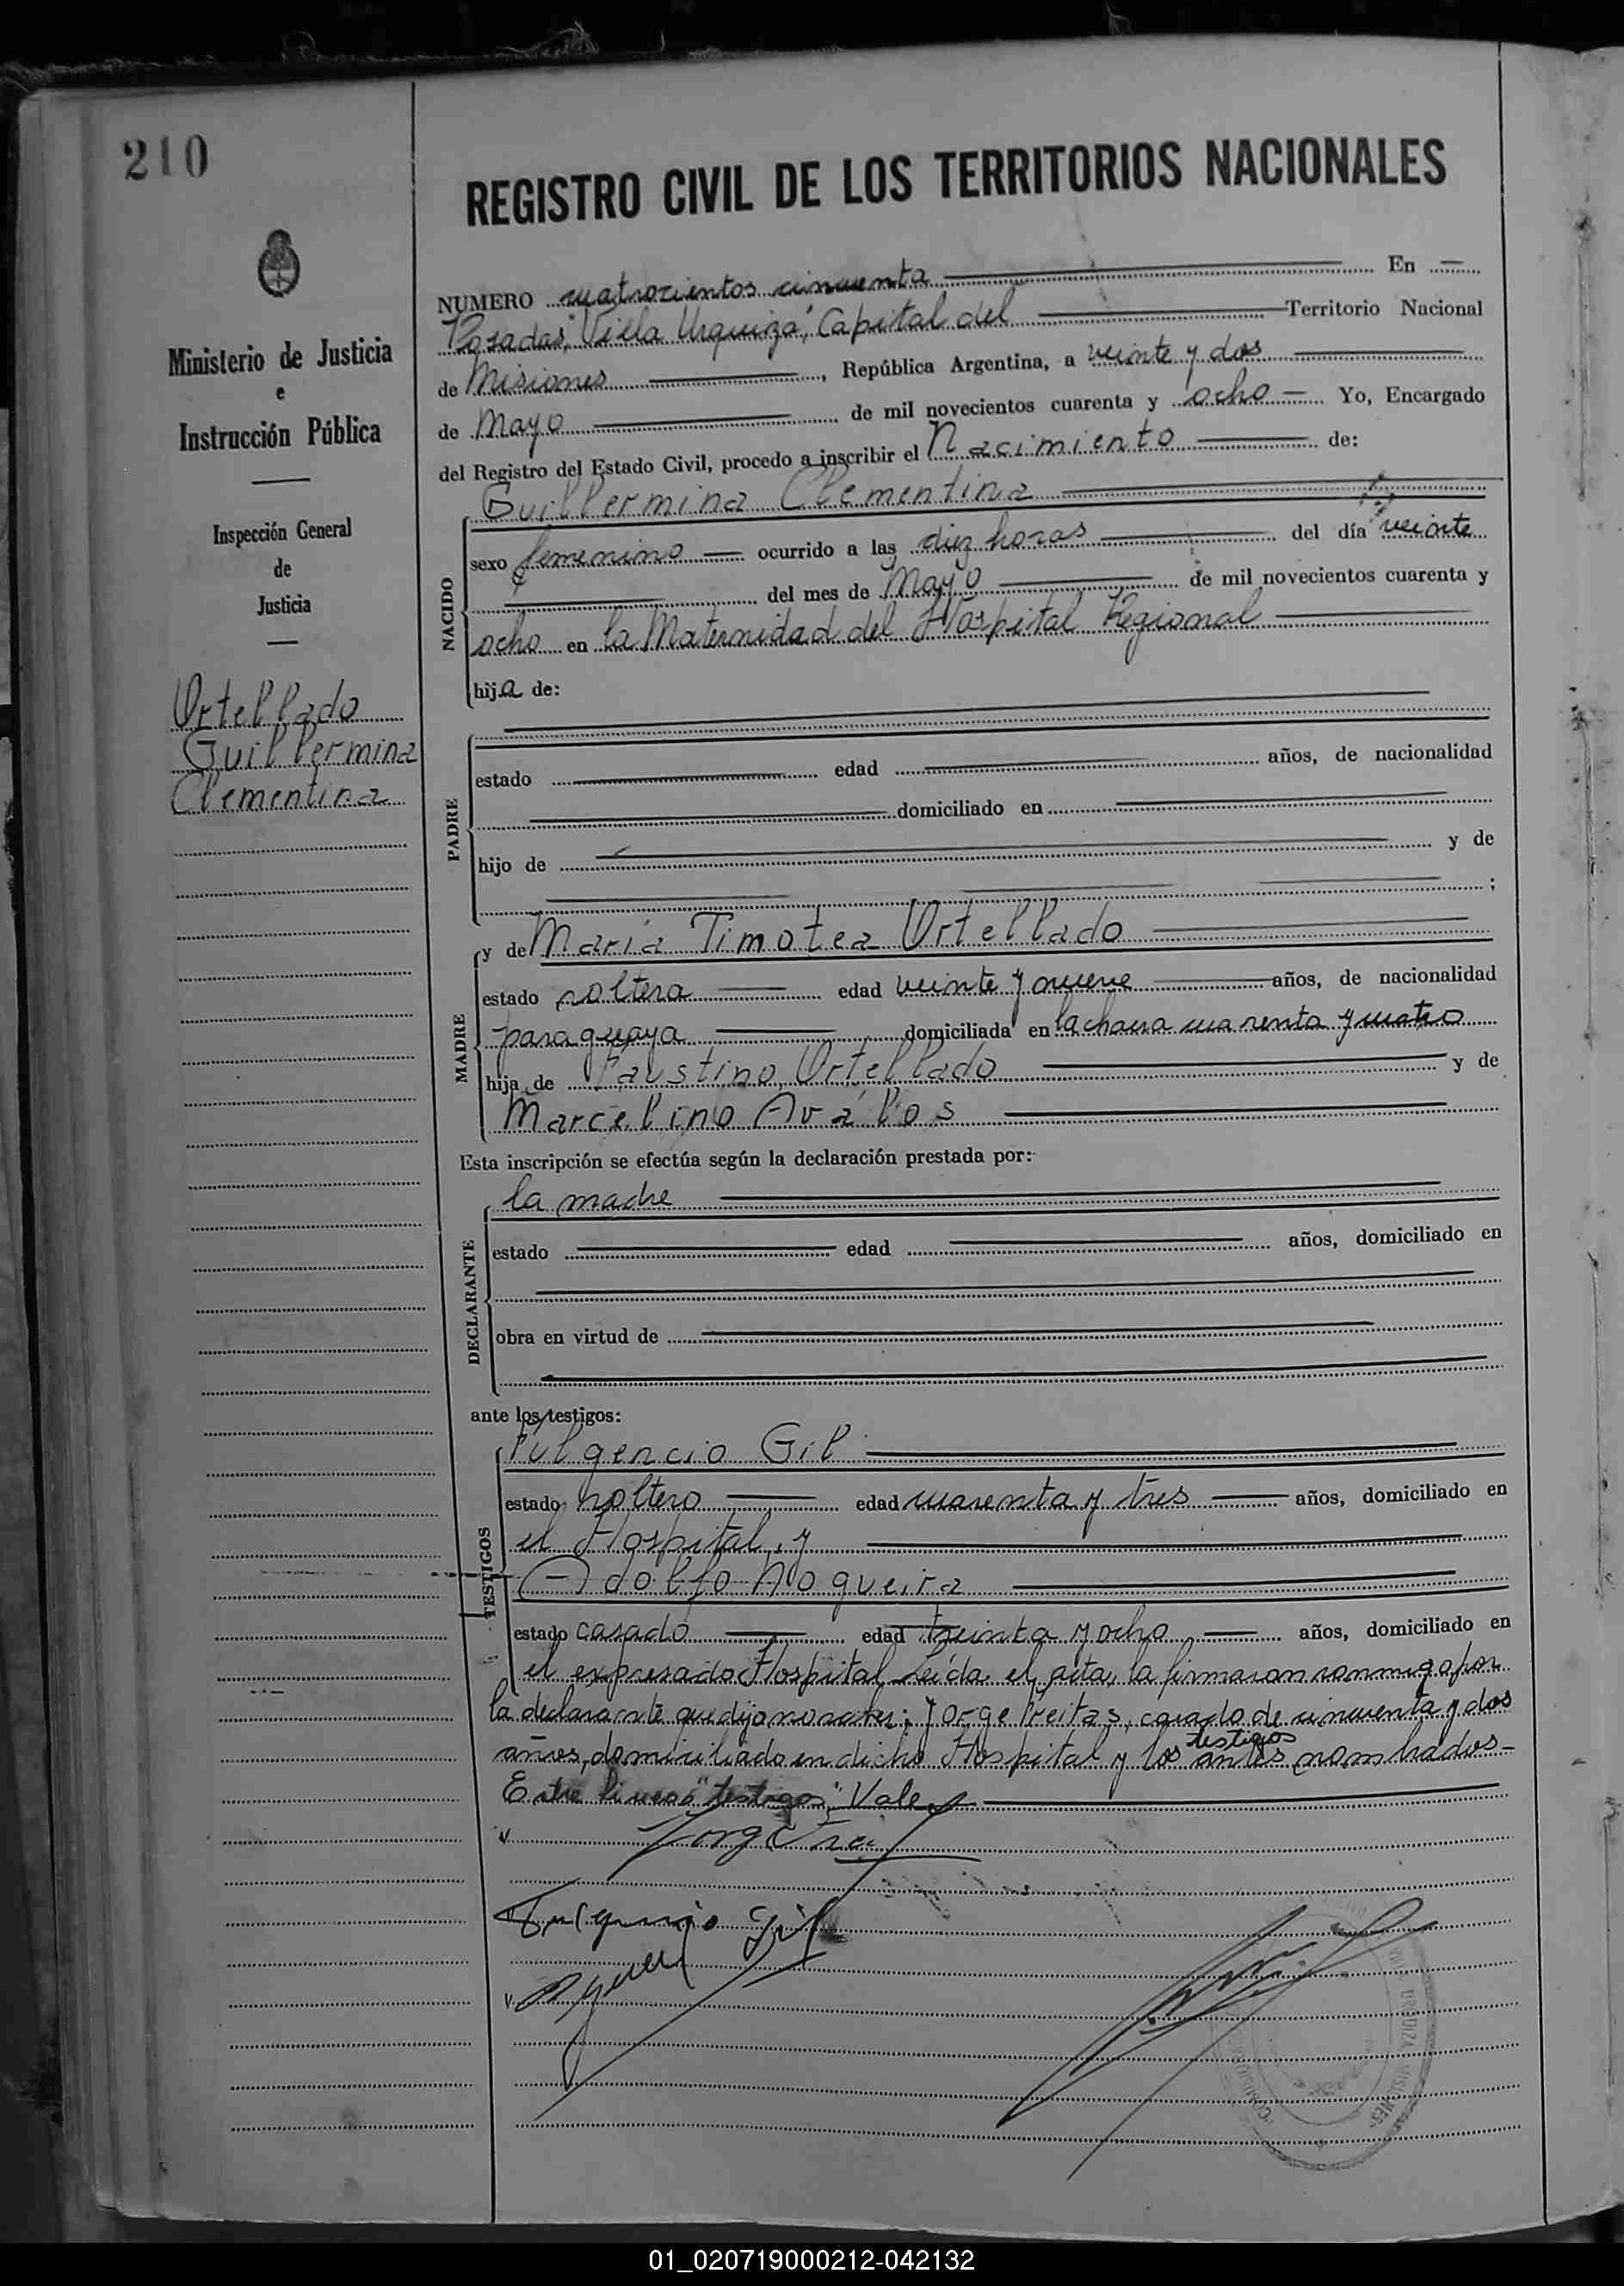 210
REGISTRO CIVIL DE LOS TERRITORIOS NACIONALES
Ministerio de Justicia
e
Instrucción Pública
Inspección General
de
Justicia
Ortellado
Guillermina
Clementina
NUMERO cuatrocientos cincuenta En
Posadas, "Villa Urquiza", Capital del Territorio Nacional
de Misiones, República Argentina, a veinte y dos
de Mayo de mil novecientos cuarenta y ocho Yo, Encargado
del Registro del Estado Civil, procedo a inscribir el Nacimiento de:
Guillermina Clementina
NACIDO
sexo femenino ocurrido a las diez horas del día veinte
del mes de Mayo de mil novecientos cuarenta y
ocho en la Maternidad del Hospital Regional
hija de:
PADRE
estado edad años, de nacionalidad
domiciliado en
hijo de y de
;
MADRE
y de María Timotea Ortellado
estado soltera edad veinte y nueve años, de nacionalidad
paraguaya domiciliada en la chacra cuarenta y cuatro
hija de Faustino Ortellado y de
Marcelino Aválos
Esta inscripción se efectúa según la declaración prestada por:
DECLARANTE
la madre
estado edad años, domiciliado en
obra en virtud de
ante los testigos:
TESTIGOS
Fulgencio Gil
estado soltero edad cuarenta y tres años, domiciliado en
el Hospital, y
Adolfo Nogueira
estado casado edad treinta y ocho años, domiciliado en
el expresado Hospital Leída el acta, la firmaron conmigo por
la declarante que dijo no saber; Jorge Freitas, casado de cincuenta y dos
años, domiciliado en dicho Hospital y los testigos antes nombrados-
Entre lineas "testigos": Vale
Fulgencio Gil
VILLA URQUIZA MISIONES
01_020719000212-042132